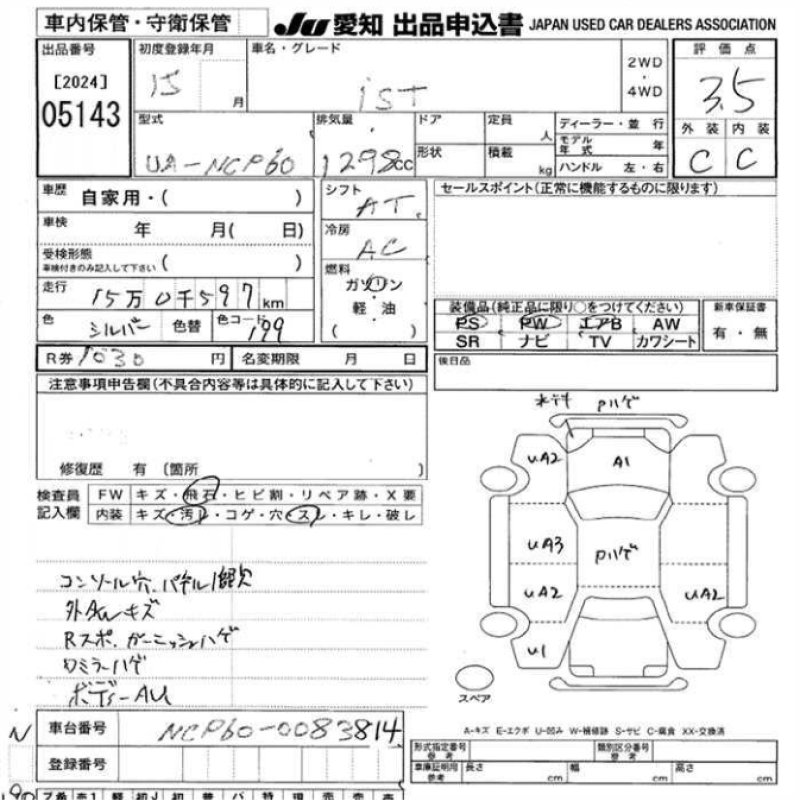 車内保管・守衛保管
JU 愛知 出品申込書 JAPAN USED CAR DEALERS ASSOCIATION
出品番号
[2024]
05143
初度登録年月
15 月
車名・グレード
iST
2WD
・
4WD
評価点
3.5
外装 内装
C C
型式
UA-NCP60
排気量
1298cc
ドア
定員
人
形状
積載
kg
ディーラー・並行
モデル年式 年
ハンドル 左・右
車歴 自家用・( )
車検 年 月( 日)
受検形態
車検付きのみ記入して下さい ( )
走行 15万0千597km
色 シルバー 色替 色コード 199
シフト
AT
冷房
AC
燃料
ガソリン
軽油
( )
セールスポイント(正常に機能するものに限ります)
装備品(純正品に限り○をつけてください)
PS PW エアB AW
SR ナビ TV カワシート
新車保証書
有・無
R券 1030 円 名変期限 月 日
後日品
注意事項申告欄(不具合内容等は具体的に記入して下さい)
修復歴 有 〔箇所 〕
検査員
記入欄
FW キズ・飛石・ヒビ割・リペア跡・X要
内装 キズ・汚レ・コゲ・穴・スレ・キレ・破レ
コンソール穴、パネル1部欠
外AWキズ
Rスポ、ガーニッシュハゲ
ロミラーハゲ
ボディーAU
Pハゲ
UA2
A1
UA3
Pハゲ
UA2
UA2
U1
スペア
N
車台番号 NCP60-0083814
登録番号
A-キズ E-エクボ U-凹み W-補修跡 S-サビ C-腐食 XX-交換済
形式指定番号
参考
類別区分番号
参考
車庫証明用
参考
長さ cm 幅 cm 高さ cm